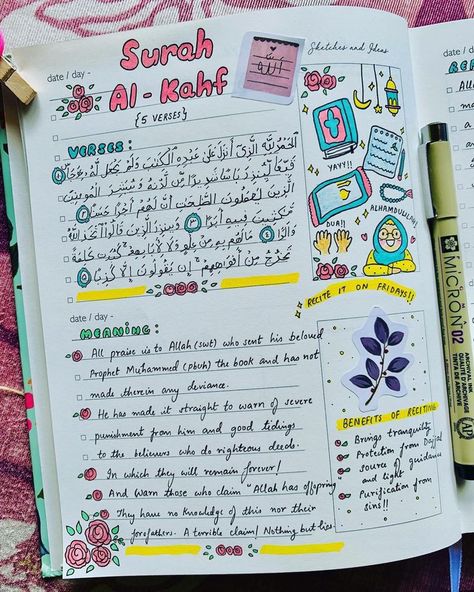 Surah
Al - Kahf
{5 VERSES}
date / day -
VERSES:
ٱلْحَمْدُ لِلَّهِ ٱلَّذِىٓ أَنزَلَ عَلَىٰ عَبْدِهِ ٱلْكِتَٰبَ وَلَمْ يَجْعَل لَّهُۥ عِوَجَا ١
قَيِّمًا لِّيُنذِرَ بَأْسًا شَدِيدًا مِّن لَّدُنْهُ وَيُبَشِّرَ ٱلْمُؤْمِنِينَ
ٱلَّذِينَ يَعْمَلُونَ ٱلصَّٰلِحَٰتِ أَنَّ لَهُمْ أَجْرًا حَسَنًا ٢
مَّٰكِثِينَ فِيهِ أَبَدًا ٣ وَيُنذِرَ ٱلَّذِينَ قَالُوا۟ ٱتَّخَذَ ٱللَّهُ
وَلَدًا ٤ مَّا لَهُم بِهِۦ مِنْ عِلْمٍ وَلَا لِءَابَآئِهِمْ كَبُرَتْ كَلِمَةً
تَخْرُجُ مِنْ أَفْوَٰهِهِمْ إِن يَقُولُونَ إِلَّا كَذِبًا ٥
date / day -
MEANING:
All praise is to Allah (swt) who sent his beloved
Prophet Muhammed (pbuh) the book and has not
made therein any deviance.
He has made it straight to warn of severe
punishment from him and good tidings
to the believers who do righteous deeds.
In which they will remain forever!
And warn those who claim "Allah has offspring
They have no knowledge of this nor their
forefathers. A terrible claim! Nothing but lies.
Sketches and Ideas
الله
YAYY!!
DUA!!
ALHAMDULILLAH!
RECITE IT ON FRIDAYS!!
BENEFITS OF RECITING
Brings tranquility
Protection from Dajjal
source of guidance
and light
Purification from
sins!!
date / day -
MICRON 02
ARCHIVAL INK